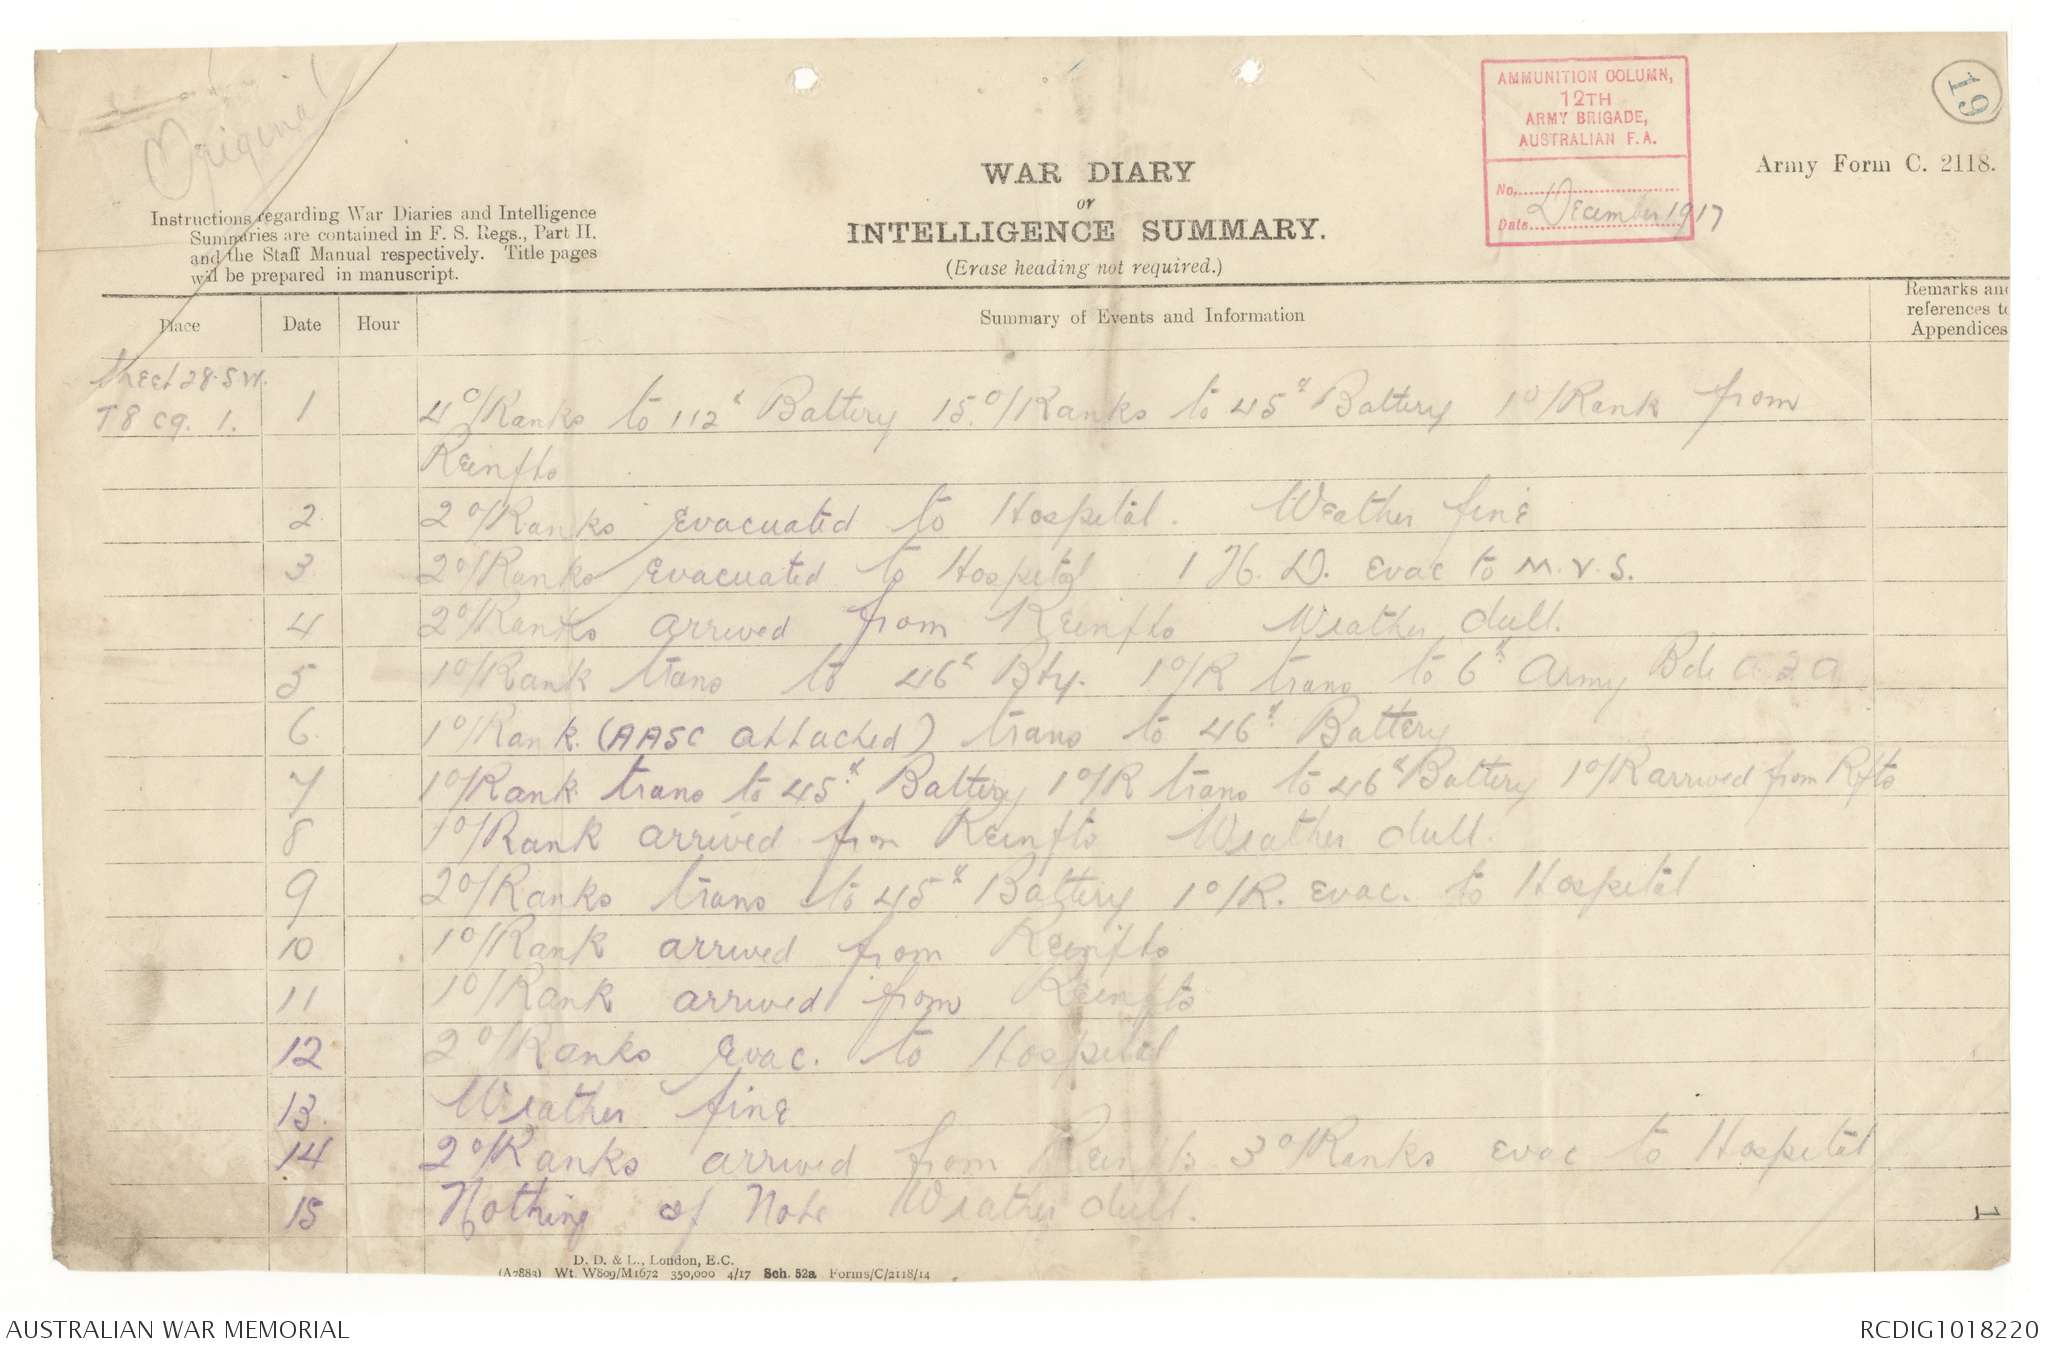 Original
AMMUNITION COLUMN,
12TH
ARMY BRIGADE,
AUSTRALIAN F.A.
No.
Date December 1917
19
Army Form C. 2118.
WAR DIARY
or
INTELLIGENCE SUMMARY.
(Erase heading not required.)
Instructions regarding War Diaries and Intelligence
Summaries are contained in F. S. Regs., Part II.
and the Staff Manual respectively. Title pages
will be prepared in manuscript.
Place Date Hour Summary of Events and Information Remarks and
references to
Appendices
Sheet 28. SW.
T8 c9. 1. 1 4 O/Ranks to 112th Battery 15. O/Ranks to 45th Battery 1 O/Rank from
Reinfts
2. 2 O/Ranks Evacuated to Hospital. Weather fine
3 2 O/Ranks Evacuated to Hospital 1 H. D. Evac to M.V.S.
4 2 O/Ranks arrived from Reinfts Weather dull.
5 1 O/Rank trans to 46th Bty. 1 O/R trans to 6th Army Bde A.F.A
6. 1 O/Rank. (AASC attached) trans to 46th Battery
7 1 O/Rank trans to 45th Battery 1 O/R trans to 46th Battery 1 O/R arrived from Rfts
8 1 O/Rank arrived from Reinfts Weather dull.
9 2 O/Ranks trans to 45th Battery 1 O/R. Evac. to Hospital
10 1 O/Rank arrived from Reinfts
11 1 O/Rank arrived from Reinfts
12 2 O/Ranks Evac. to Hospital
13. Weather fine
14 2 O/Ranks arrived from Reinfts 3 O/Ranks evac to Hospital
15 Nothing of Note Weather dull.
1
D. D. & L., London, E.C.
(A7883) Wt. W809/M1672 350,000 4/17 Sch. 52a Forms/C/2118/14
AUSTRALIAN WAR MEMORIAL
RCDIG1018220